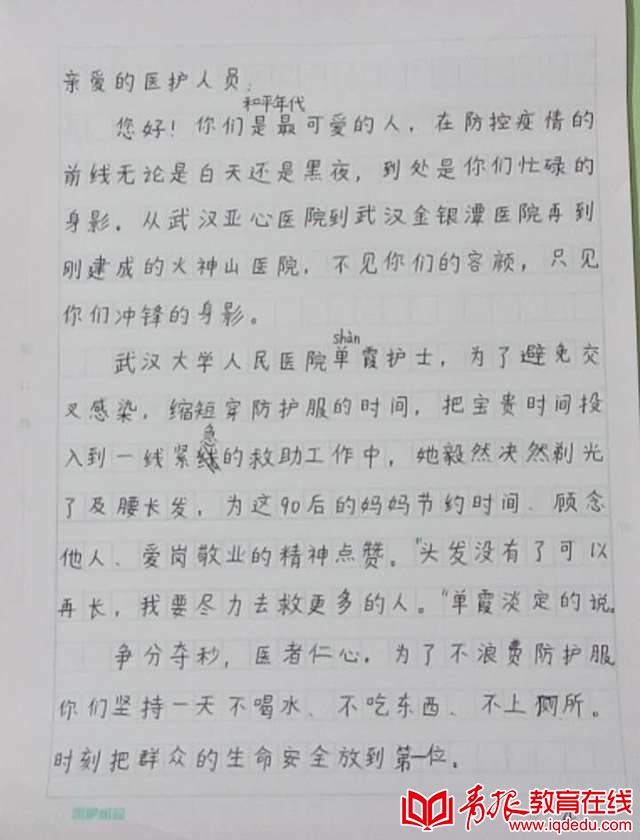 亲爱的医护人员：
和平年代
您好！你们是最可爱的人，在防控疫情的
前线无论是白天还是黑夜，到处是你们忙碌的
身影。从武汉亚心医院到武汉金银潭医院再到
刚建成的火神山医院，不见你们的容颜，只见
你们冲锋的身影。
shàn
武汉大学人民医院单霞护士，为了避免交
叉感染，缩短穿防护服的时间，把宝贵时间投
急
入到一线紧的救助工作中，她毅然决然剃光
了及腰长发，为这90后的妈妈节约时间、顾念
他人、爱岗敬业的精神点赞。"头发没有了可以
再长，我要尽力去救更多的人。"单霞淡定的说。
争分夺秒，医者仁心。为了不浪费防护服
你们坚持一天不喝水、不吃东西、不上厕所。
时刻把群众的生命安全放到第一位。
青报教育在线
www.iqdedu.com